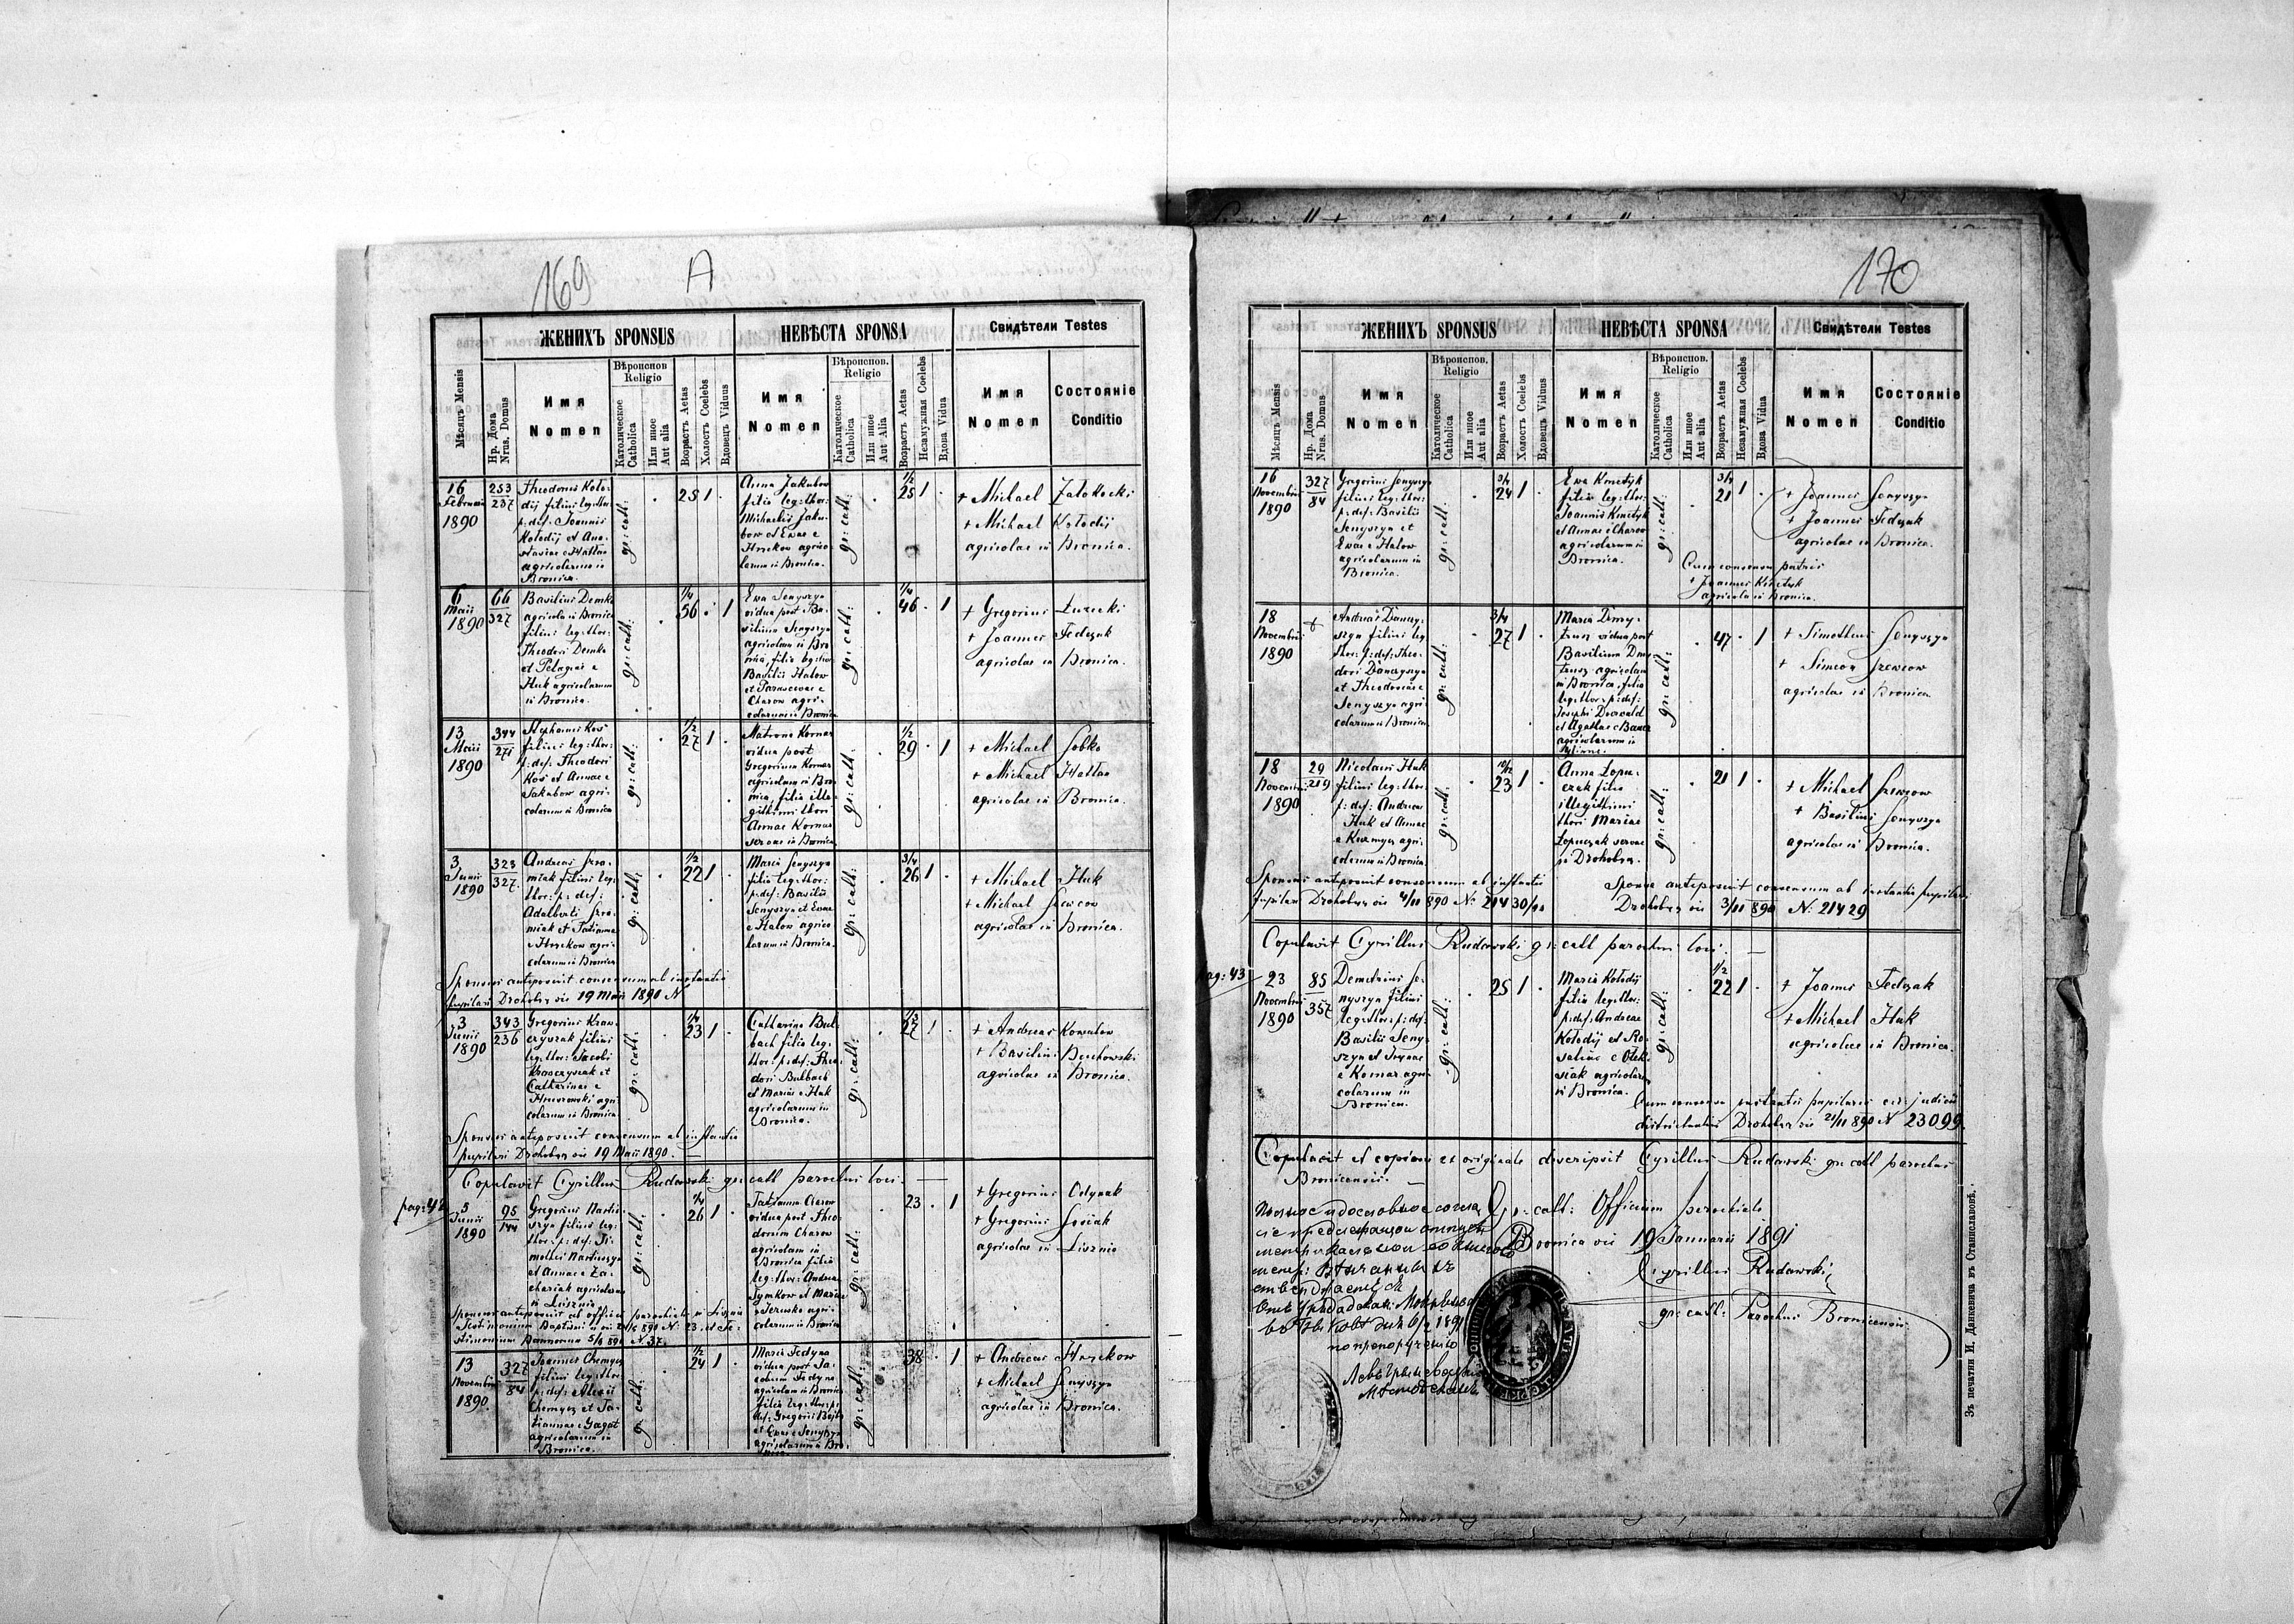 169 A
ЖЕНИХЪ SPONSUS
НЕВѢСТА SPONSA
Свидѣтели Testes
Мѣсяцъ Mensis
Нр. Дома
Nrus. Domus
Имя
Nomen
Вѣроиспов.
Religio
Католическое
Catholica
Или иное
Aut alia
Возрастъ Aetas
Холостъ Coelebs
Вдовецъ Viduus
Имя
Nomen
Вѣроиспов.
Religio
Католическое
Catholica
Или иное
Aut Alia
Возрастъ Aetas
Незамужная Coelebs
Вдова Vidua
Имя
Nomen
Состояніе
Conditio
16
Februarii
1890
253
237
Theodorus Koło-
dij filius leg: thor:
p: def: Joannis
Kołodij et Ana-
stasiae e Hattas
agricolarum in
Bronica.
gr: cath:
25 1
Anna Jakubow
filia leg: thor:
Michaelis Jaku-
bow et Evae e
Hryckow agrico-
larum in Bronica.
gr: cath:
1/2
25 1
+ Michael Załokocki
+ Michael Kołodij
agricolae in Bronica.
6
Maii
1890
66
327
Basilius Demko
agricola in Bronica
filius leg: thor:
Theodori Demko
et Pelagiae e
Huk agricolarum
in Bronica.
gr: cath:
1/4
56 1
Ewa Senyszyn
vidua post Ba-
silium Senyszyn
agricolam in Bro-
nica, filia leg: thor:
Basilii Hałow
et Parascevae e
Charow agri-
colarum in Bronica
gr: cath:
1/4
46 1
+ Gregorius Łuzecki
+ Joannes Fedczak
agricolae in Bronica.
13
Maii
1890
344
271
Stephanus Kos
filius leg: thor:
p: def: Theodori
Kos et Annae e
Jakubow agri-
colarum in Bronica
gr: cath:
1/2
27 1
Matrona Komar
vidua post
Gregorium Komar
agricolam in Bro-
nica, filia ille-
githimi thori
Annae Komar
servae in Bronica
gr: cath:
1/2
29 1
+ Michael Sobko
+ Michael Hattas
agricolae in Bronica.
3
Junii
1890
323
327
Andreas Szro-
miak filius leg:
thor: p: def:
Adalberti Szro-
miak et Tatianna
e Hryckow agri-
colarum in Bronica
gr: cath:
1/2
22 1
Maria Senyszyn
filia leg: thor:
p: def: Basilii
Senyszyn et Evae
e Hałow agrico-
larum in Bronica.
gr: cath:
3/4
26 1
+ Michael Huk
+ Michael Szewcow
agricolae in Bronica.
Sponsus anteposuit consensum ab instantia
pupilari Drohobycz die 19 Maii 1890 N
3
Junii
1890
343
236
Gregorius Kraw-
czyszak filius
leg: thor: Jacobi
Krawczyszak et
Catharinae e
Hruszowski agri-
colarum in Bronica.
gr: cath:
1/4
23 1
Catharina Bul-
bach filia leg:
thor: p: def: Theo-
dori Bulbach
et Mariae e Huk
agricolarum in
Bronica.
gr: cath:
1/2
27 1
+ Andreas Kowalow
+ Basilius
agricolae in Bronica.
Sponsus anteposuit consensum ab instantia
pupilari Drohobycz die 19 Maii 1890.
Copulavit Cyrillus Rudawski gr: cath parochus loci.
pag: 42
5
Junii
1890
95
144
Gregorius Nartis-
szyn filius leg:
thor: p: def: Ti-
mothei
et Annae e Za-
chariak agricolarum
in Lisznia.
gr: cath:
1/4
26 1
Tatianna Charow
vidua post Theo-
dorum Charow
agricolam in
Bronica filia
leg: thor: Andreae
Symkow et Mariae
agri-
colarum in Bronica
gr: cath:
23 1
+ Gregorius Odynak
+ Gregorius
agricolae in Lisznia
Sponsus anteposuit ab officio parochiali in Lisznia
Testimonium Baptismi
stimonium Bannorum 5/6 890 N 37.
13
Novembris
1890.
327
84
Joannes Chemycz
filius leg: thor
p: def: Alexii
Chemycz et Ta-
tiannae e Gagat
agricolarum in
Bronica.
gr: cath:
1/2
24 1
Maria Fedyna
vidua post Ja-
cobum Fedyna
agricolam in Bronica
filia leg: thor: p:
def: Gregorii
et Evae e Senyszyn
agricolarum in Bro-
nica.
gr: cath:
38 1
+ Andreas Hrycekow
+ Michael Senyszyn
agricolae in Bronica.
170
ЖЕНИХЪ SPONSUS
НЕВѢСТА SPONSA
Свидѣтели Testes
Мѣсяцъ Mensis
Нр. Дома
Nrus. Domus
Имя
Nomen
Вѣроиспов.
Religio
Католическое
Catholica
Или иное
Aut alia
Возрастъ Aetas
Холостъ Coelebs
Вдовецъ Viduus
Имя
Nomen
Вѣроиспов.
Religio
Католическое
Catholica
Или иное
Aut alia
Возрастъ Aetas
Незамужная Coelebs
Вдова Vidua
Имя
Nomen
Состояніе
Conditio
16
Novembris
1890
327
84
Gregorius Senyszyn
filius leg: thor:
p: def: Basilii
Senyszyn et
Evae e Hałow
agricolarum in
Bronica.
gr: cath:
3/4
24 1
Ewa Kmetyk
filia leg: thor:
Joannis Kmetyk
et Annae e Charow
agricolarum in
Bronica.
gr: cath:
3/4
21 1
+ Joannes Senyszyn
+ Joannes Fedczak
agricolae in Bronica.
Cum consensu patris
+ Joannes Kmetyk
agricola in Bronica.
18
Novembris
1890
Andreas Danczy-
szyn filius leg
thor: p: def: Theo-
dori Danczyszyn
et Theodosiae e
Senyszyn agri-
colarum in Bronica
gr: cath:
3/4
27 1
Maria Dmy-
trusz vidua post
Basilium Dmy-
trusz agricolam
in Bronica, filia
leg: thor: p: def:
Josephi
et Agathae e
agricolarum in
gr: cath:
47 1
+ Timotheus Senyszyn
+ Simeon Szewcow
agricolae in Bronica.
18
Novembris
1890
29
219
Nicolaus Huk
filius leg: thor:
p: def: Andreae
Huk et Annae
e Kuzmycz agri-
colarum in Bronica
gr: cath:
10/12
23 1
Anna Łopu-
czak filia
illegithimi
thori Mariae
Łopuczak servae
in Drohobycz.
gr: cath:
21 1
+ Michael Szewcow
+ Basilius Senyszyn
agricolae in Bronica.
Sponsus anteposuit consensum ab instantia
pupilari Drohobycz die 4/11 890 N: 21430/90
Sponsa anteposuit consensum ab instantia pupilari
Drohobycz die 3/11 890 N: 21429
Copulavit Cyrillus Rudawski gr: cath parochus loci.
pag: 43
23
Novembris
1890
85
357
Demetrius Se-
nyszyn filius
leg: thor: p: def:
Basilii Seny-
szyn et Irynae
e Komar agri-
colarum in
Bronica.
gr: cath:
25 1
Maria Kołodij
filia leg: thor:
p: def: Andreae
Kołodij et Ro-
saliae e Olek-
siak agricolarum
in Bronica.
gr: cath:
1/2
22 1
+ Joannes Fedczak
+ Michael Huk
agricolae in Bronica.
Cum consensu instantii pupilaris c: r: judicii
districtualis Drohobycz die 21/11 890 N 23099.
Copulavit et copiam ex originale descripsit Cyrillus Rudawski gr: cath parochus
Bronicensis.
Gr: cath: Officium parochiale
Bronica die 19 Januarii 1891
Cyrillus Rudawski
gr: cath: Parochus Bronicensis
Зъ печатни И. Данкевича въ Станиславовѣ.